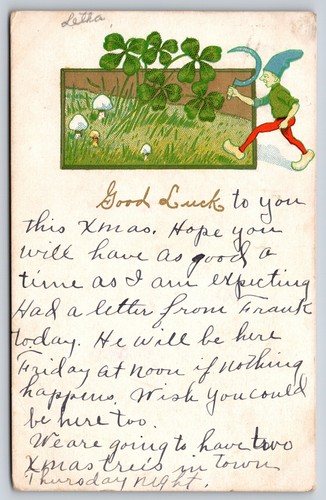 Letha,
Good Luck to you
this Xmas. Hope you
will have as good a
time as I am expecting
Had a letter from Frank
today. He will be here
Friday at noon if nothing
happens. Wish you could
be here too.
We are going to have two
Xmas trees in town
Thursday night.